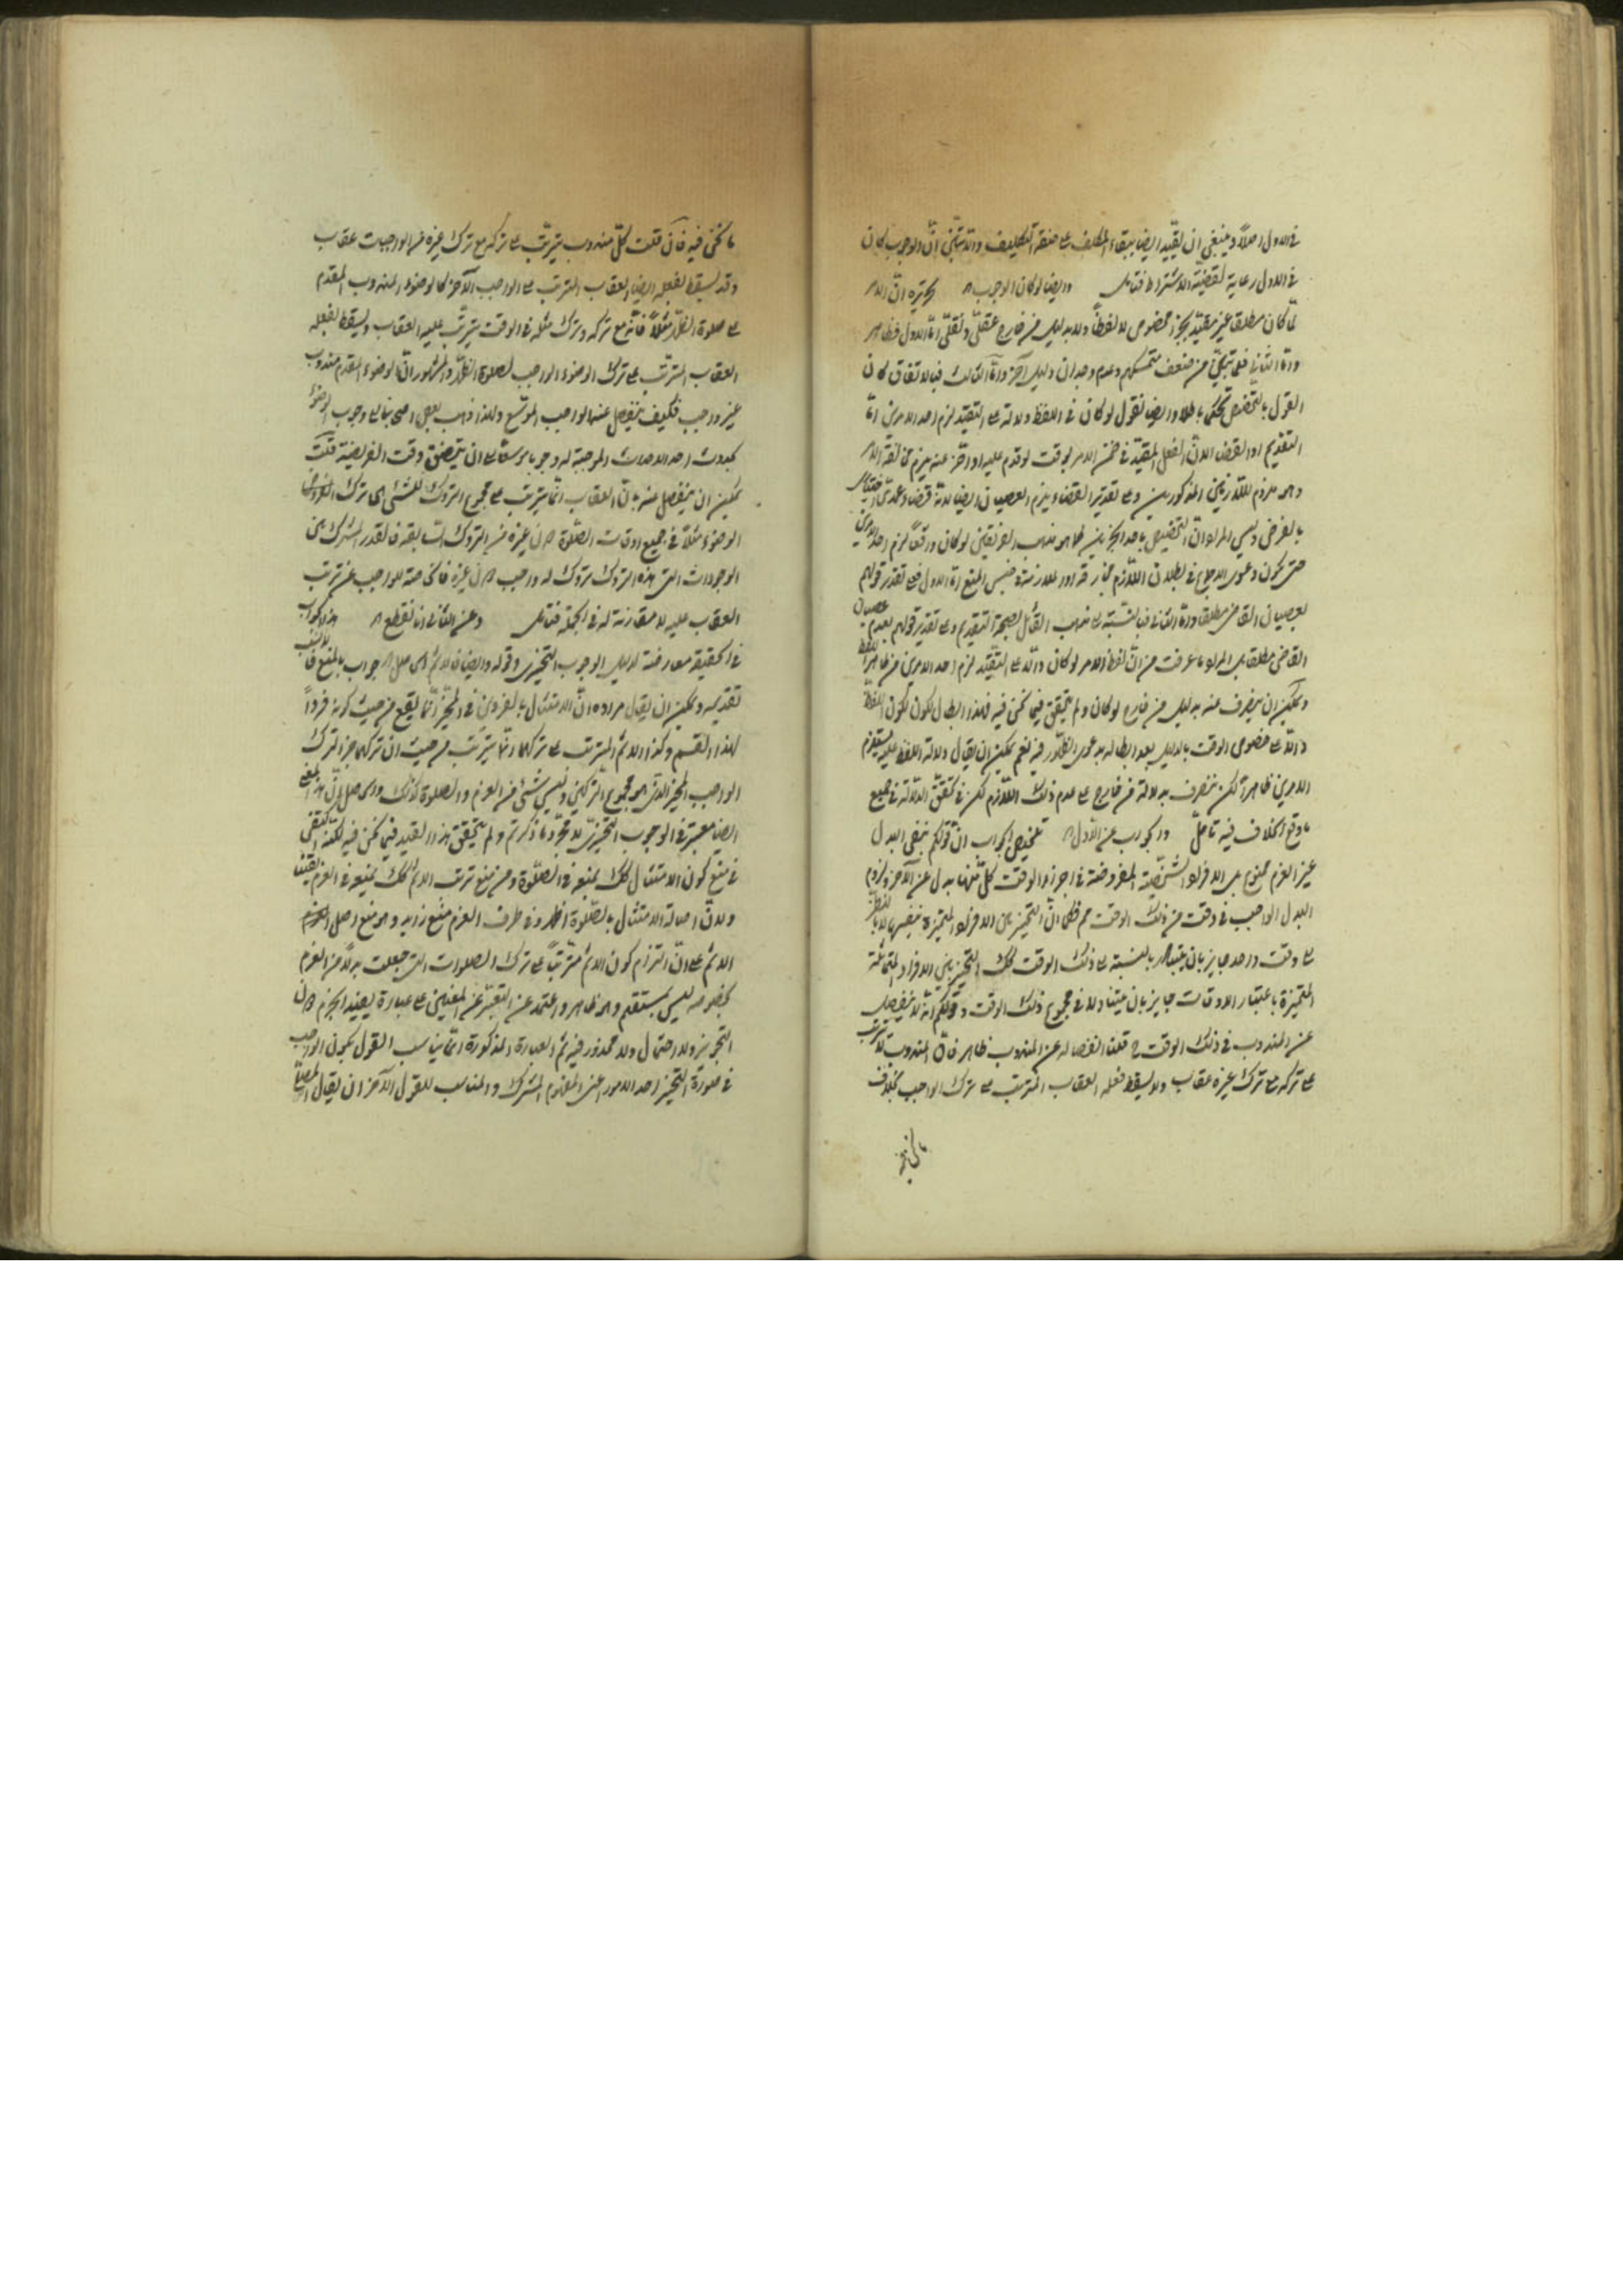 في الاول اصلا وينبغي ان يقيد ايضا ببقاء المكلف على صفة التكليف والا يتبين ان الوجوب كان
في الاول رعاية لقضية الاشتراط فتأمل وايضا لو كان الوجوب تحريره ان الامر
لما كان مطلقا غير مقيد بجزء مخصوص لا لفظا ولا بدليل من خارج عقلي ونقلي اما الاول فظاهر
واما الثاني فلما تبين من ضعف متمسكهم وعدم وجدان دليل آخر واما الثالث فبالاتفاق كان
القول بالتخصيص تحكما باطلا وايضا نقول لو كان في اللفظ دلالة على التقييد لزم احد الامرين اما
التقديم او القضاء لان الفعل المقيد في ضمن الامر بوقت لو قدم عليه او اخر عنه يلزم مخالفة الامر
وهو ملزوم للازمين المذكورين وعلى تقدير القضاء يلزم العصيان ايضا لانه فرض
بالفرض وليس المراد ان التخصيص باحد الجزئين كما هو مذهب الفريقين لو كان واقعا لزم احد الامرين
حتى يكون دعوى الاجماع في بطلان اللازم مجازفة والملازمة في حيز المنع اما الاول فعلى تقدير قولهم
بعصيان القاضي مطلقا واما الثاني فبالنسبة الى مذهب القائل بصحة التقديم وعلى تقدير قولهم بعدم عصيان
القاضي مطلقا بل المراد ما عرفت من ان لفظ الامر لو كان دالا على التقييد لزم احد الامرين من ظاهر اللفظ
ويمكن ان يصرف عنه بدليل من خارج لو كان ولم يتحقق فيما نحن فيه فهذا ابطال لكون اللفظ
دالا على خصوص الوقت بالدليل بعد ابطاله بدعوى الظهور فيه نعم يمكن ان يقال دلالة اللفظ عليه يستلزم
الامرين ظاهرا لكن ينصرف بدلالة من خارج على عدم ذلك اللازم لكن في تحقق الدلالة في جميع
ما وقع الخلاف فيه تأمل والجواب عن الاول تلخيص الجواب ان قولكم بنفي البدل
غير العزم ممنوع بل الافراد المفروضة في اجزاء الوقت كل منها بدل عن الآخر ولزوم
البدل الواجب في وقت من ذلك الوقت مم فكما ان التخيير بين الافراد المتميزة بنفسها لا بالنظر
الى وقت واحد جايز بان بالنسبة الى ذلك الوقت كك التخيير بين الافراد المتماثلة
المتميزة باعتبار الاوقات جايز بان في مجموع ذلك الوقت وقولكم انه لا ينفصل
عن المندوب في ذلك الوقت قلنا انفصاله عن المندوب ظاهر فان المندوب لا يترتب
على تركه مع ترك غيره عقاب ولا يسقط فعله العقاب المترتب على ترك الواجب بخلاف
ما نحن فيه
ما نحن فيه فان قلت كل مندوب يترتب على تركه مع ترك غيره من الواجبات عقاب
وقد يسقط لفعله ايضا العقاب المترتب على الواجب الآخر كالوضوء المندوب المقدم
على صلوة الظهر مثلا فانه مع تركه وترك مثله في الوقت يترتب عليه العقاب ويسقط لفعله
العقاب المترتب على ترك الوضوء الواجب لصلوة الظهر والمشهور ان الوضوء المقدم مندوب
غير واجب فكيف ينفصل عنه الواجب الموسع ولهذا ذهب بعض اصحابنا الى وجوب الوضوء
بحدوث احد الاحداث الموجبة له وجوبا موسعا الى ان يتضيق وقت الفريضة قلت
يمكن ان ينفصل عنه بان العقاب انما يترتب على مجموع التروك للشئ اي ترك
الوضوء مثلا في جميع اوقات الصلوة لا غيره من التروك السابقة فالقدر المشترك بين
الوجودات التي هذه التروك تروك له واجب غيره فالخاصة للواجب عن ترتب
العقاب عليه لا مقارنة له في الجملة فتأمل وعن الثاني انا نقطع هذا الجواب
في الحقيقة معارضة لدليل الوجوب التخييري وقوله وايضا فالاثم اي حاصله جواب بالمنع
تقديمه ويمكن ان يقال مراده ان الامتثال بالفرد من في المخير انما يقع من حيث كونه فردا
لهذا القسم وكذا الاثم المترتب على تركهما انما يترتب من حيث ان تركهما جزء الترك
الواجب المخير الذي هو مجموع التركين وليس شئ من العزم والصلوة كذلك والحاصل ان هذا المعنى
ايضا معتبر في الوجوب التخييري لا مجرد ما ذكرتم ولم يتحقق هذا القيد فيما نحن فيه لكنه اكتفى
في منع كون الامتثال كك بمنعه في الصلوة ومن منع ترتب الاثم كك بمنعه في العزم
ولان اصالة الامتثال بالصلوة اظهر وفي طرف العزم منع زايد وهو منع اصل
الاثم على ان التزام كون الاثم مترتبا على ترك الصلوات التي جعلت بدلا من العزم
بخصوصه ليس بمستقيم وهو ظاهر واعتمد عن التعبير عن المعنيين على عبارة يفيد الجزم
التجويز والاحتمال ولا محذور فيه ثم العبارة المذكورة انما يناسب القول بكون الواجب
في صورة التخيير احد الامور اعني المفهوم المشترك والمناسب للقول الآخر ان يقال